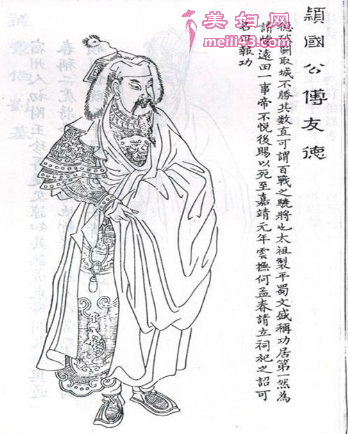 潁國公傅友德
取城不勝其數直可謂百戰之驍將也太祖製平蜀文盛稱功居第一然為
請懷遠田一事帝不悅後賜以死至嘉靖元年雲撫何孟春請立祠祀之詔可
名曰報功
美妇网
meili43.com